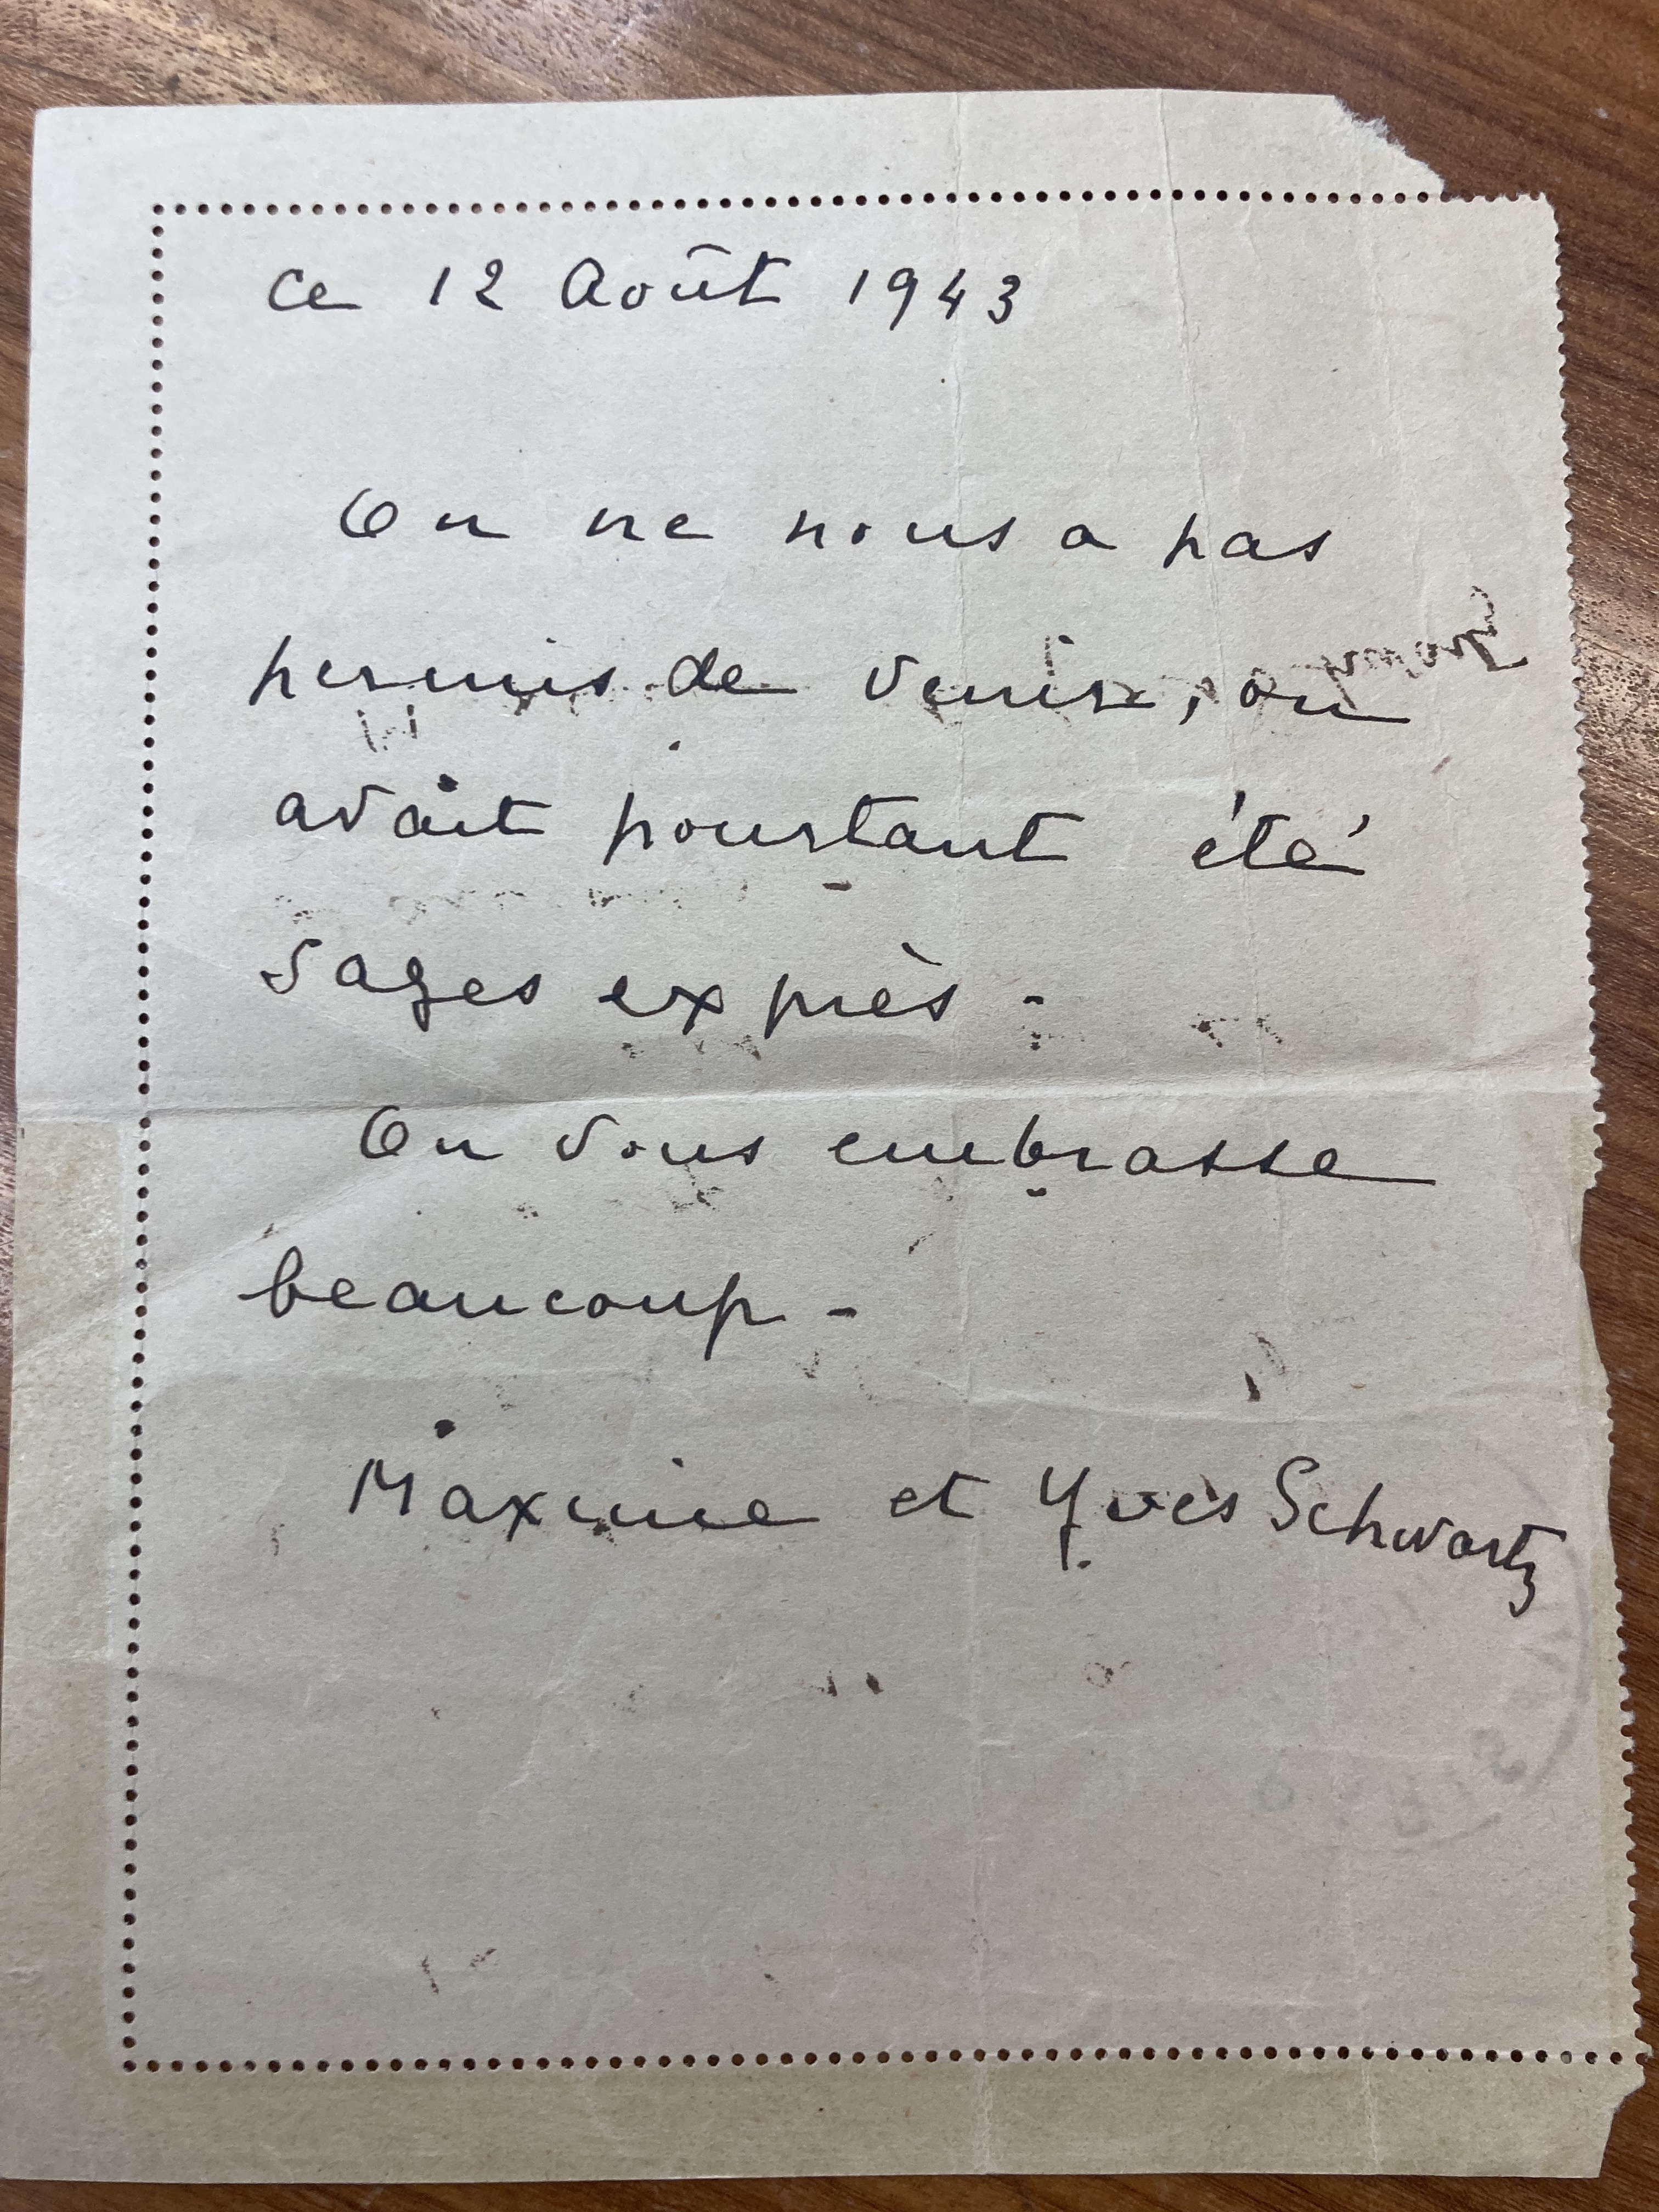 ce 12 Août 1943
On ne nous a pas
permis de venir, on
avait pourtant été
sages exprès -
On vous embrasse
beaucoup -
Maxime et Yves Schwartz